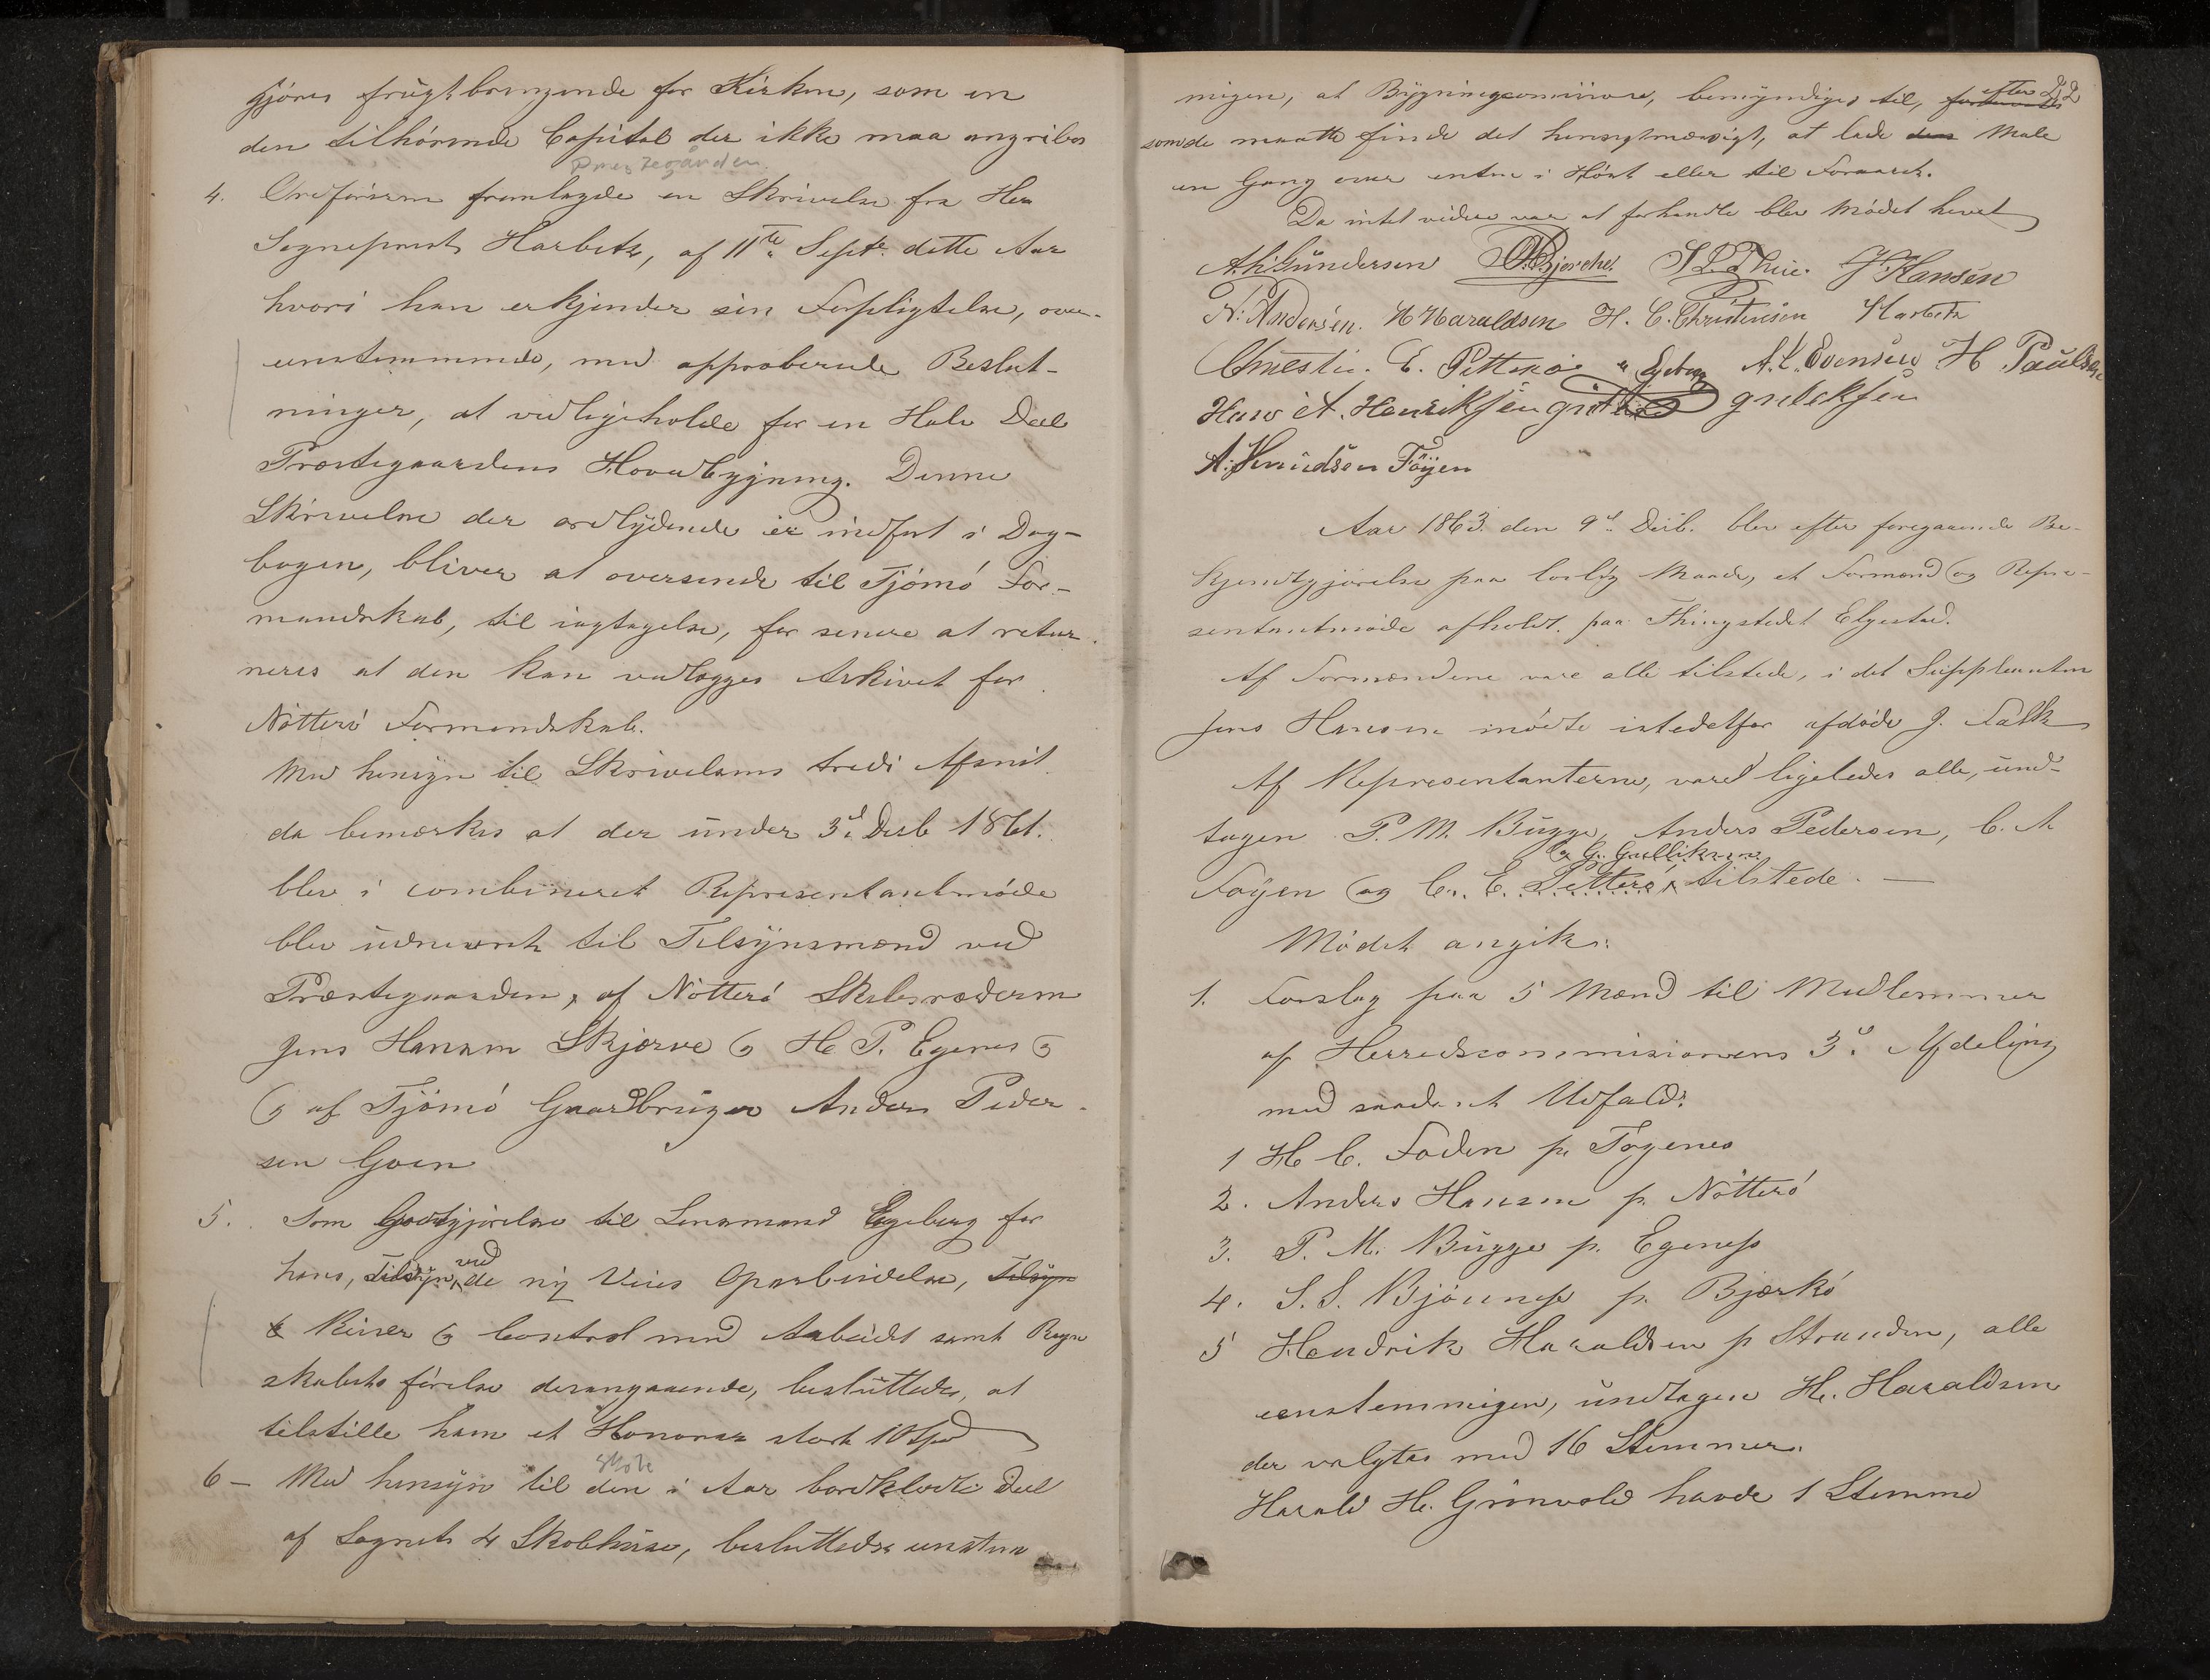 gjöres frugtbringende for Kirken, som en
den tilhörende Capital der ikke maa angribes
Prestegården
4. Ordföreren fremlagde en Skrivelse fra Her
Sogneprest Harbitz, af 11te Septr dette Aar
hvori han erkjender sin Forpligtelse, over-
eenstemmende, med approberede Beslut-
ninger, at vedligeholde for en Halv Deel
Præstegaardens Hovedbygning. Denne
Skrivelse der ordlydende er indfört i Dag-
bogen, bliver at oversende til Tjömö For-
mandskab, til iagtagelse, for senere at retur-
neres at den kan vedlægges Arkivet for
Nötterö Formandskab.
Med hensyn til Skrivelsens tredi Afsnit
da bemærkes at der under 3d Decb 1861.
blev i combineret Representantmöde
blev udnævnt til Tilsynsmænd ved
Præstegaarden, af Nötterö Skibsrederen
Jens Hansen Skjerve og H P. Egenes og
og af Tjömö Gaardbruger Anders Peder-
sen Goen
5. Som Godtgjörelse til Lensmand Egeberg for
hans, Tilsyn ved de ny Veies Oparbeidelse, Tilsyn
& Reiser og Control med Arbeidet samt Regn
skabets förelse desangaaende, besluttedes, at
tilstille ham et Honorar stort 10 Spd
Skole
6 – Med hensyn til den i Aar bordklædte Deel
af Sognets 4 Skolehuse, besluttedes eenstem
22
migen, at Bygningscommissionen, bemyndiges til, efter
som de maatte finde det hensigtmæssigt, at lade dem Male
en Gang over enten i Höst eller til Foraaret.
Da intet videre var at forhandle blev Mödet hævet
A. H. Gundersen O. Bjerche. S L. Thue. J Hansen
N. Andersen. H Haraldsen H. C. Christensen Harbitz
Chrestn. E. Petterö Egeberg A. L. Evensen H Paulsen
Hans A. Henriksen
A. Knudsen Föyen
Aar 1863 den 9d Decb. blev efter foregaaende Be-
kjendtgjörelse paa lovlig Maade, et Formand og Repre-
sentantmöde afholdt paa Thingstedet Elgestad.
Af Formændene vare alle tilstede, i det Suppleanten
Jens Hansen mödte istedetfor afdöde J. Falk
Af Representanterne, vare ligeledes alle, und-
tagen P. M. Bugge, Anders Pedersen, C. A
og G. Gulliksen
Föyen og C. E. Petterö, tilstede. —
Mödet angik:
1. Forslag paa 5 Mænd til Medlemmer
af Herredscommisionens 3d Afdeling
med saadant Udfald:
1 H C. Foden p. Tögenes
2. Anders Hansen p. Nötterö
3. P. M. Bugge p. Egeness
4. S. S. Bjönness p. Bjærkö
5 Hendrik Haraldsen p Stranden, alle
eenstemmigen, undtagen H. Haraldsen
der valgtes med 16 Stemmer.
Harald H. Grönvold havde 1 Stemme